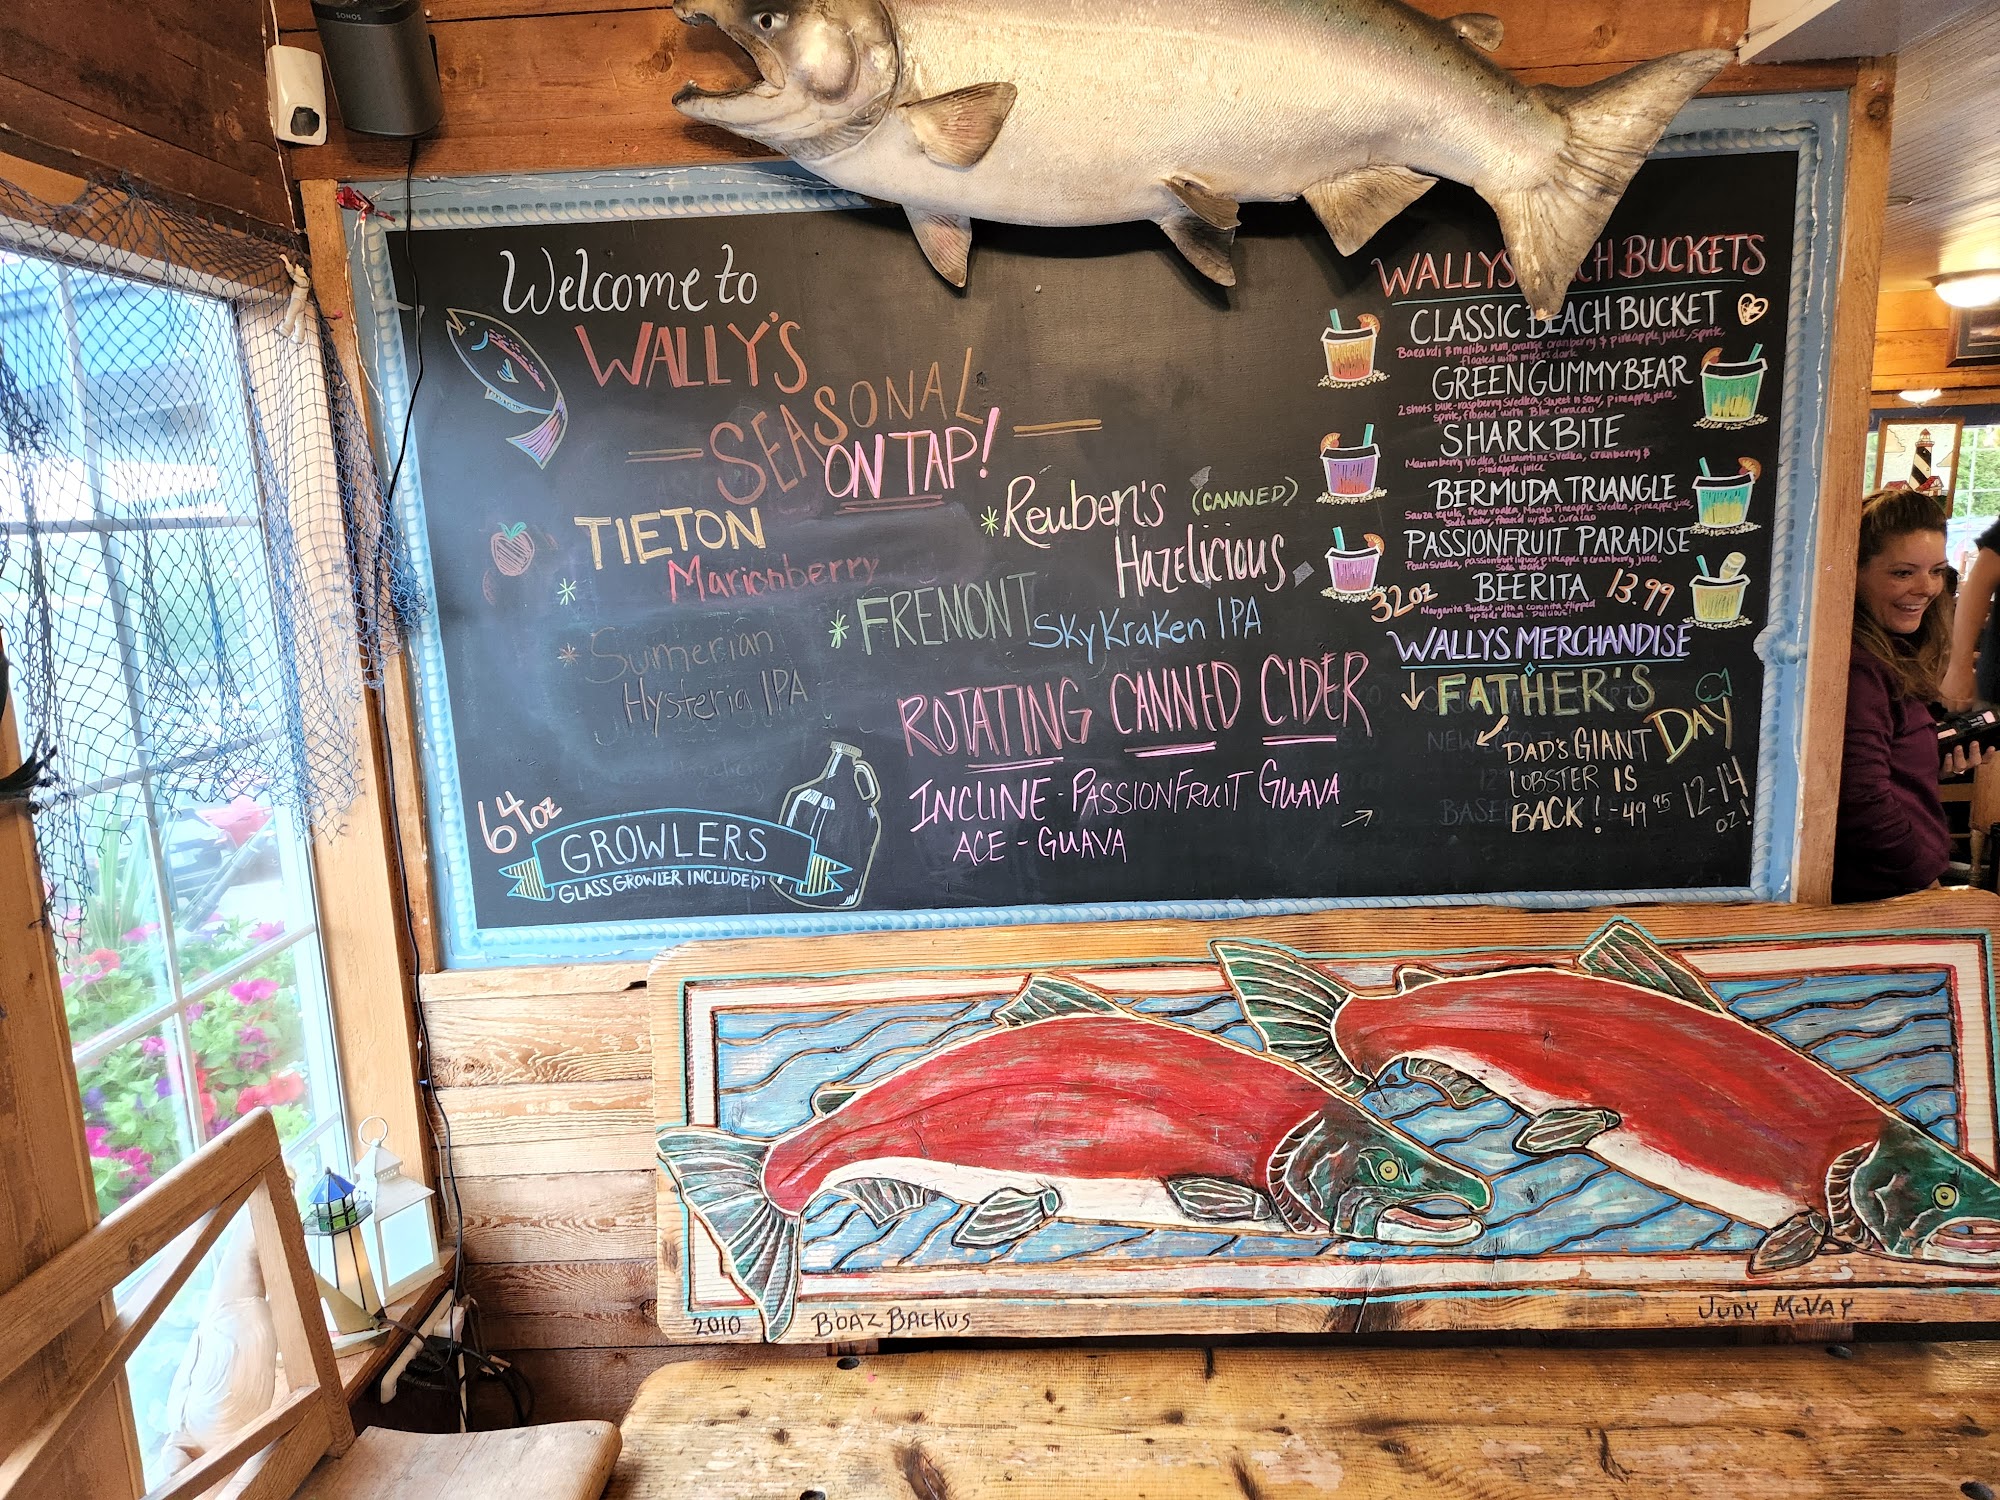 SONOS
Welcome to
WALLY'S
SEASONAL
ON TAP!
TIETON
Marionberry
Sumerian
Hysteria IPA
Reuben's (CANNED)
Hazelicious
FREMONT
Sky Kraken IPA
ROTATING CANNED CIDER
INCLINE - PASSIONFRUIT GUAVA
ACE - GUAVA
64oz
GROWLERS
GLASS GROWLER INCLUDED!
WALLYS BUCKETS
CLASSIC BEACH BUCKET
Bacardi & malibu rum, orange cranberry & pineapple juice, sprite,
floated with myers dark
GREEN GUMMY BEAR
2 shots blue-raspberry Svedka, sweet n sour, pineapple juice,
sprite, floated with Blue Curacao
SHARK BITE
Marionberry vodka, Clementine Svedka, cranberry &
pineapple juice
BERMUDA TRIANGLE
Sauza tequila, Pear vodka, Mango Pineapple Svedka, pineapple juice,
Soda water, floated w/ Blue Curacao
PASSIONFRUIT PARADISE
Peach Svedka, passionfruit liquor, pineapple & cranberry juice,
Soda water
BEERITA
32oz 13.99
Margarita Bucket with a coronita flipped
upside down. Delicious!
WALLYS MERCHANDISE
FATHER'S
DAY
DAD'S GIANT
LOBSTER IS
BACK! - 49.95
12-14
oz!
2010 BOAZ BACKUS JUDY McVAY